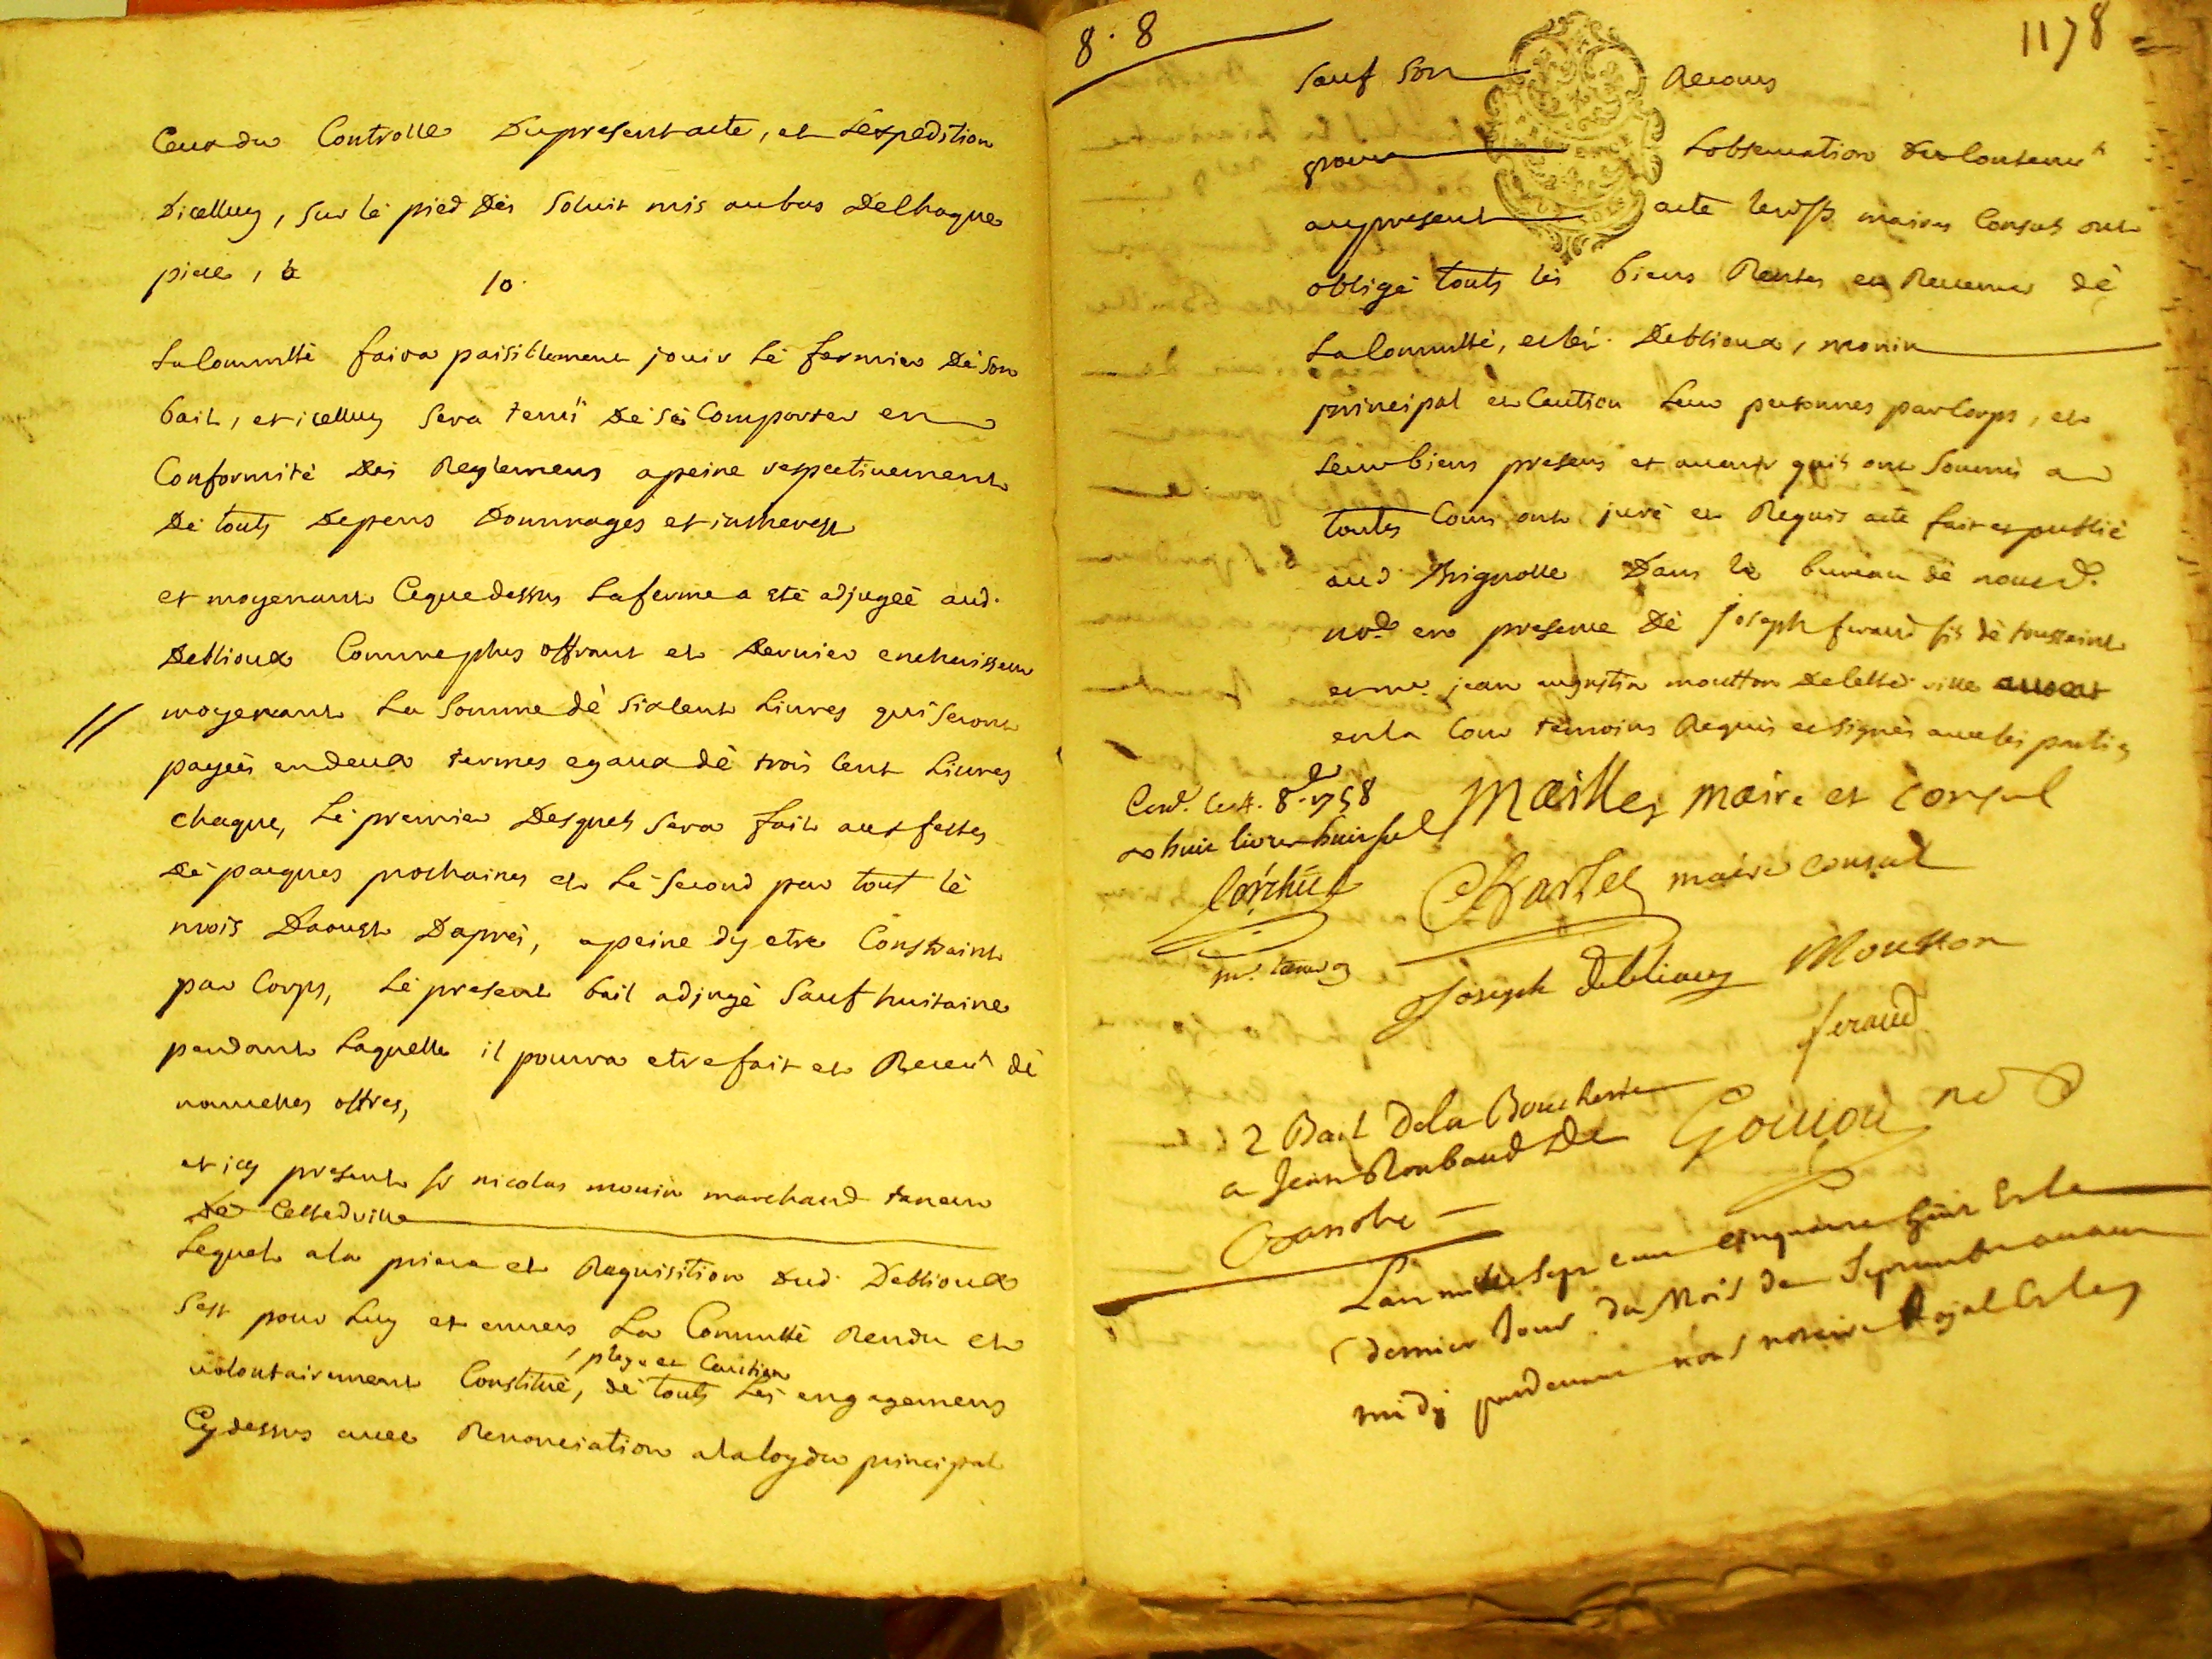 Ceux du Controlle Dupresent acte, et Lexpedition
Dicelluy, sur lé pied dés soluit mis au bas Delhaque
piece, &
10.
La Commtté faira paisiblement jouir Lé fermier Dé son
bail, et icelluy sera tenü Dé sé Comporter en
Conformité Dés Reglemens apeine respectivement
Dé touts Depens Dommages et intherests
et moyenant Cequedessus Laferme a eté adjugéé aud.
Deblioux Comme plus offrant et Dernier encherisseur
moyenant La Somme dé sixcent Livres qui seront
payéés endeux termes egaux dé trois Cent Livres
chaque, Lé premier Desquels sera fait aux festes
Dé paques prochaines et Lé second par tout lé
mois Daoust Daprés, apeine dy etre Constraint
par Corps, Lé present bail adjugé Sauf huitaine
pendant Laquelle il pourra etre fait et Receu dé
nouvelles offres,
et icy present sr nicolas monin marchand taneur
De Cettedville
Lequel ala priere et Requisition dud. Deblioux
sest pour Luy et envers La Commtté Rendu et
plege et Caution
volontairement Constitué, dé touts Lés engagemens
Cydessus avec Renonciation alaloydu principal
8 . 8
1178
sauf son Recours
pour Lobservation du Contenu
aupresent acte lesd. srs maires Consuls ont
obligé touts lés biens Rentes et Revenus dé
La Commtté, et les. Deblioux, monin
principal et Caution Leur personnes par Corps, et
Leurs biens presens et avenir quils ont soumis a
toutes Cours ont juré et Requis acte fait et publié
aud Brignolle Dans le bureau dé nousd.
nore. en presence Dé joseph feraud fils dé toussaint
et me. jean augustin moutton Decette ville avocat
en la Cour témoins Requis et signés avec les parties
Cont. le 4. 8.bre 1758
R huit livres huit sols
Mailley maire et consul
Chartel maire consul
Joseph debliouy
Moutton
feraud
2 Bail Dela Boucherie
a Jean Roubaud De
Goujon no
Lan mille sept cent cinquante huit et le
dernier Jour du Mois de Septembre avant
midy pardevant nous notaire Royal et les